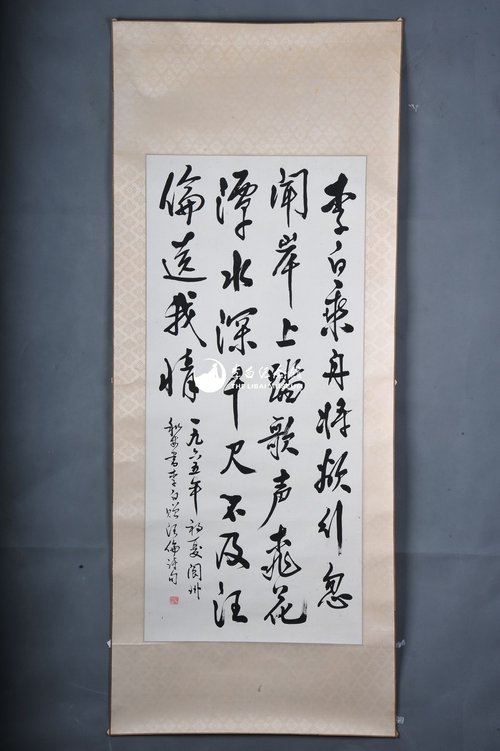 李白乘舟将欲行忽
闻岸上踏歌声桃花
潭水深千尺不及汪
倫送我情
一九六五年初夏阆州
书李白赠汪倫诗句
THE LIBAI MUSEUM